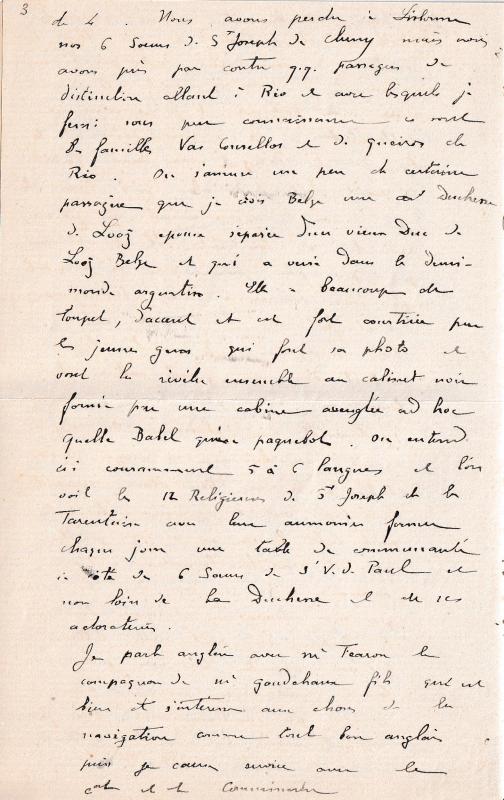 3
de 4. Nous avons perdu à Lisbonne
nos 6 Sœurs de St Joseph de Cluny mais nous
avons pris par contre q.q. passagers de
distinction allant à Rio et avec lesquels je
ferai sous peu connaissance ce sont
familles Vasconsellos et de queiros de
Rio. On s'amuse un peu de certaine
passagère que je crois Belge une Duchesse
de Looz épouse séparée d'un vieux Duc de
Looz Belge et qui a versé dans le demi-
monde argentin. Elle a beaucoup de
toupet, d'accent et est fort courtisée par
les jeunes gens qui font sa photo et
vont la révéler ensemble au cabinet noir
formé par une cabine aveuglée ad hoc
Quelle Babel qu'un paquebot. On entend
ici couramment 5 à 6 langues et l'on
voit les 12 Religieuses de St Joseph de la
Tarentaise avec leur aumonier former
chaque jour une table de communauté
à côté de 6 Sœurs de St V. de Paul et
non loin de la Duchesse et de ses
adorateurs.
Je parle anglais avec Mr Fearon le
compagnon de Mr Goudchaux fils qui est
bien et s'intéresse aux choses de la
navigation comme tout bon anglais
puis je cause service avec le
Ct et le Commissaire